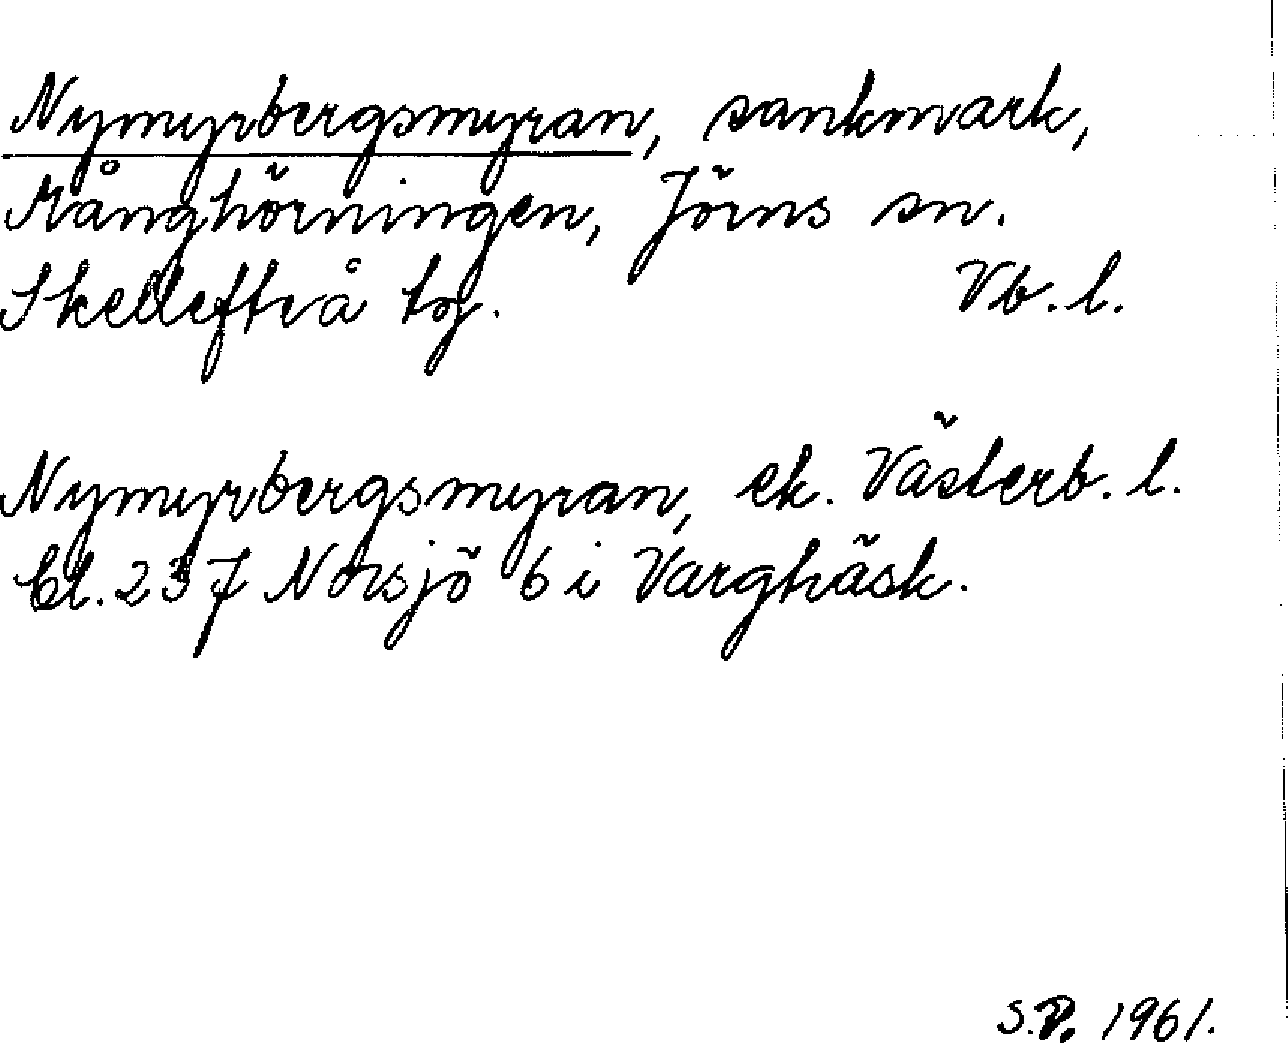 Nymyrbergsmyran, sankmark,
Månghörningen, Jörns sn.
Skellefteå tg. Vb. l.
Nymyrbergsmyran, ek. Västerb. l.
bl. 237 Norsjö 6 i Varghäsk.
S.P. 1961.